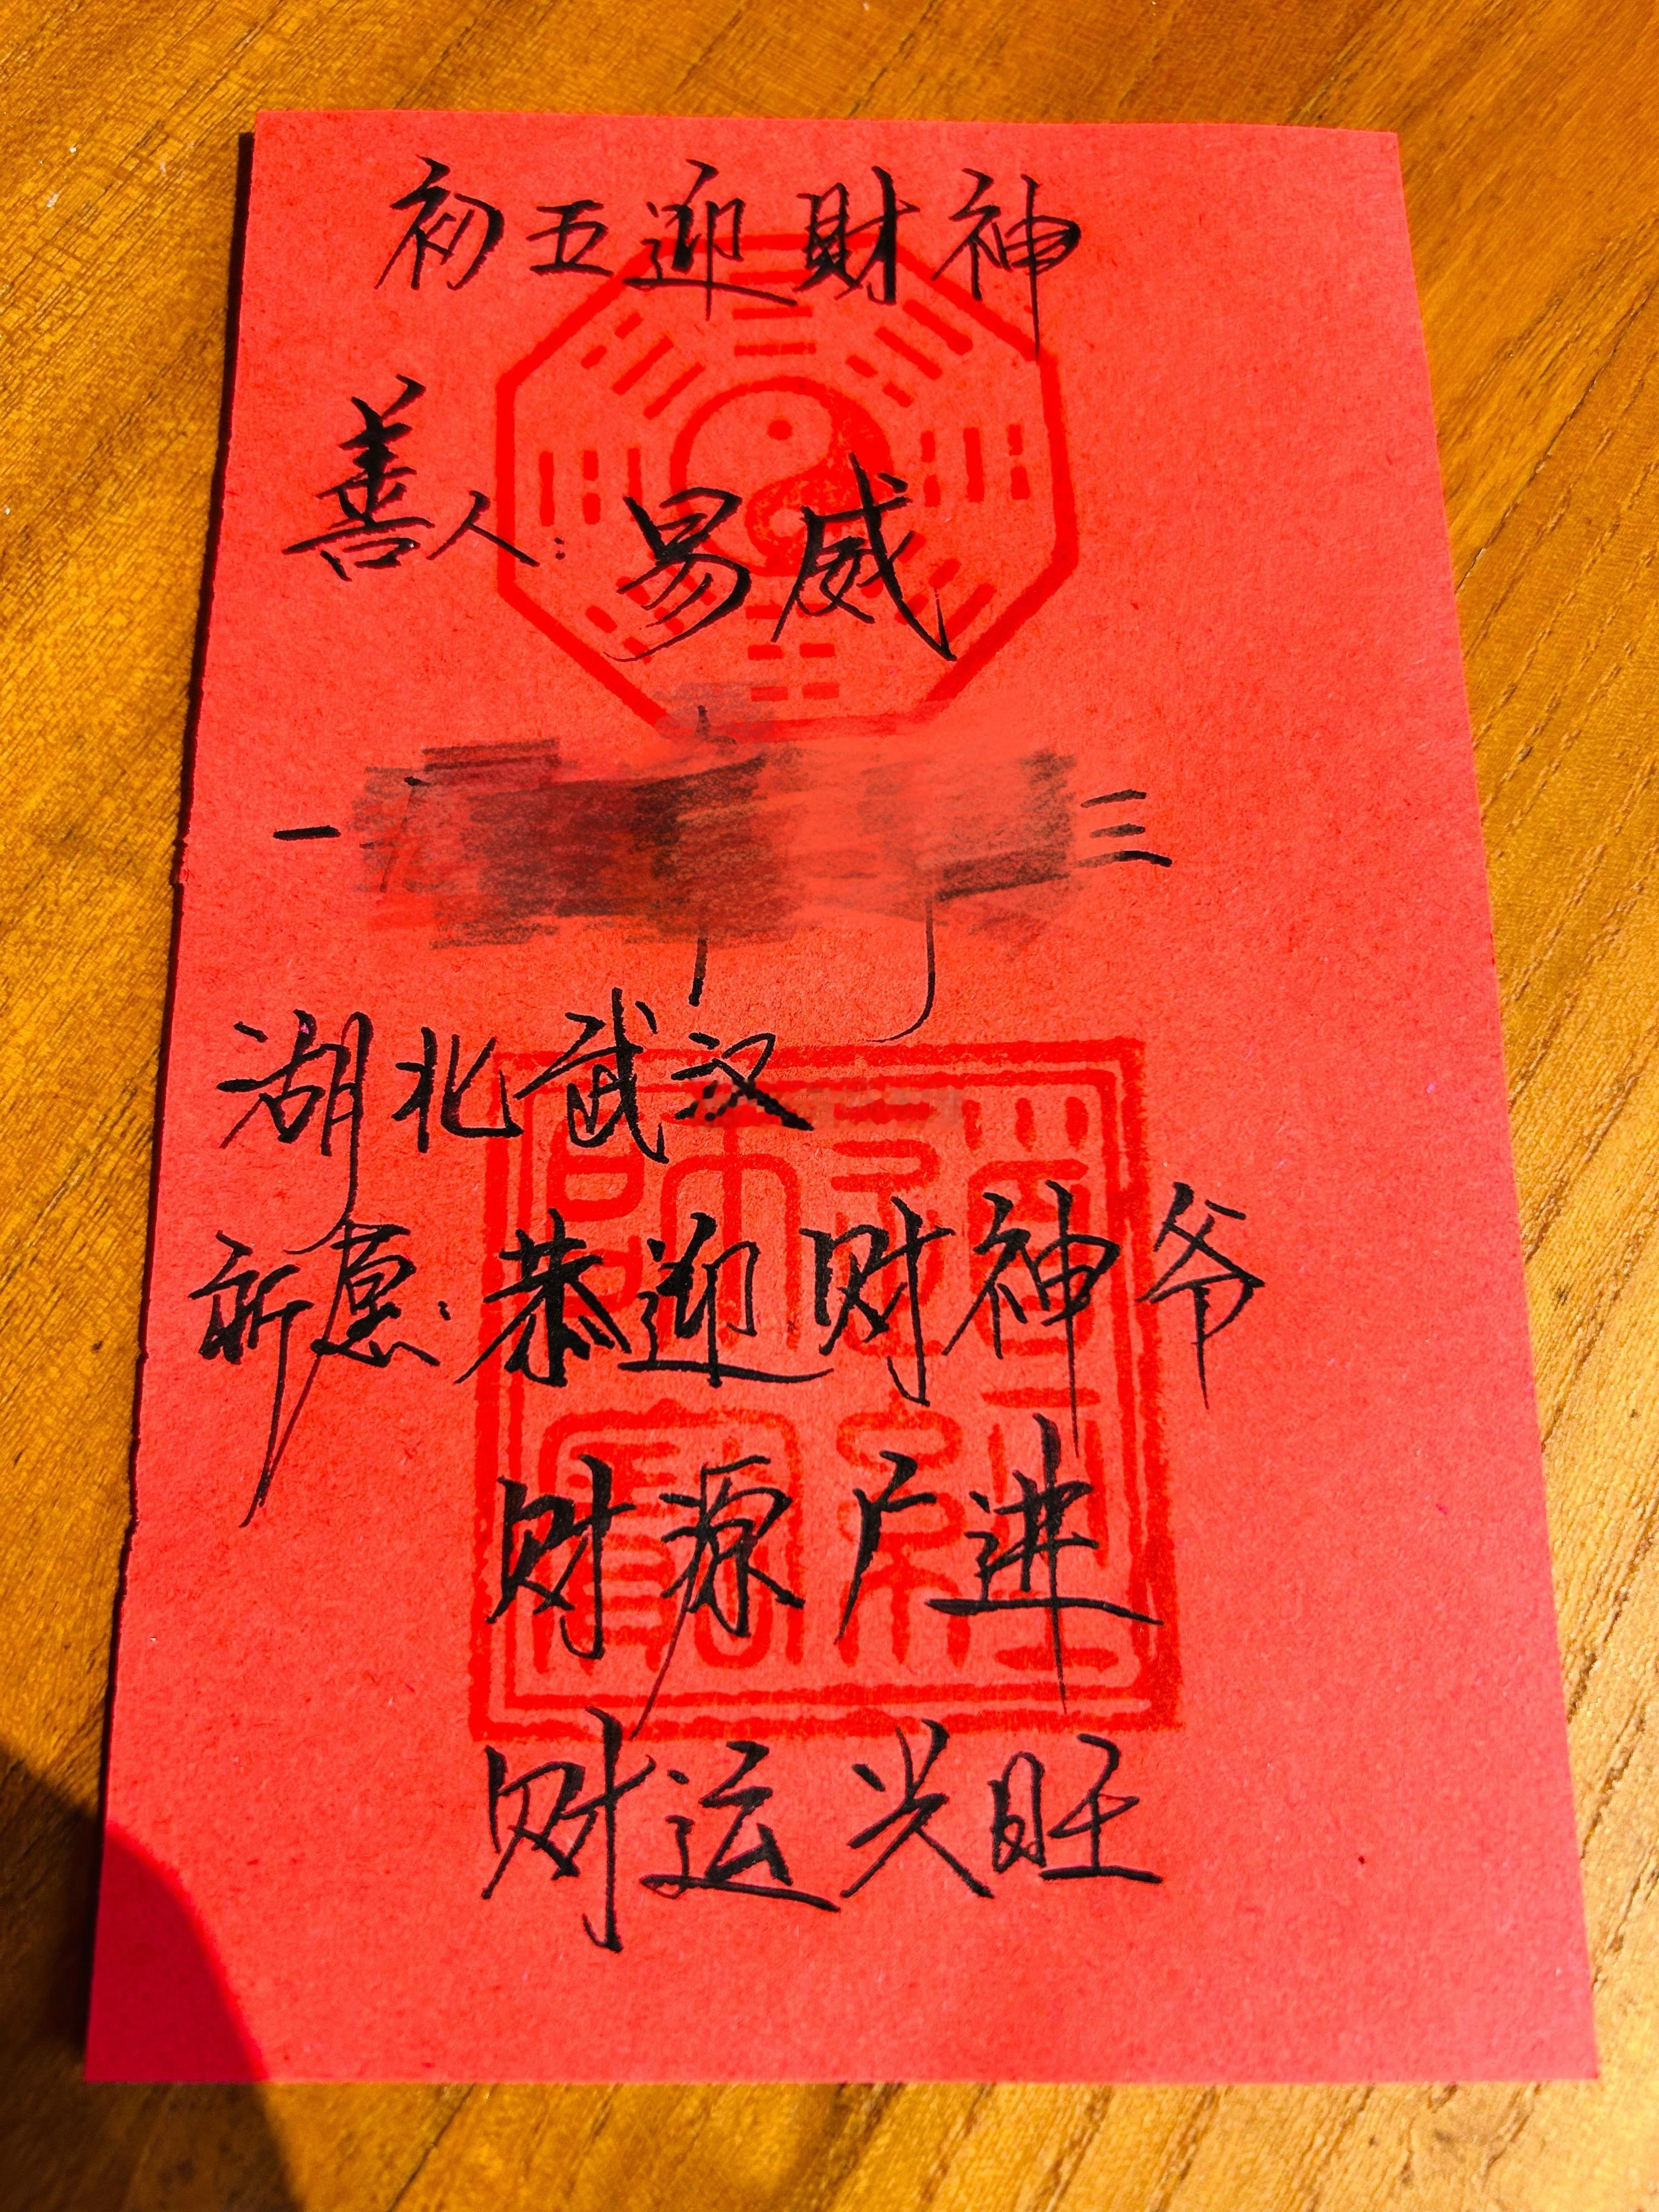 初五迎财神
善人：易威
一
三
湖北武汉
祈愿：恭迎财神爷
财源广进
财运兴旺